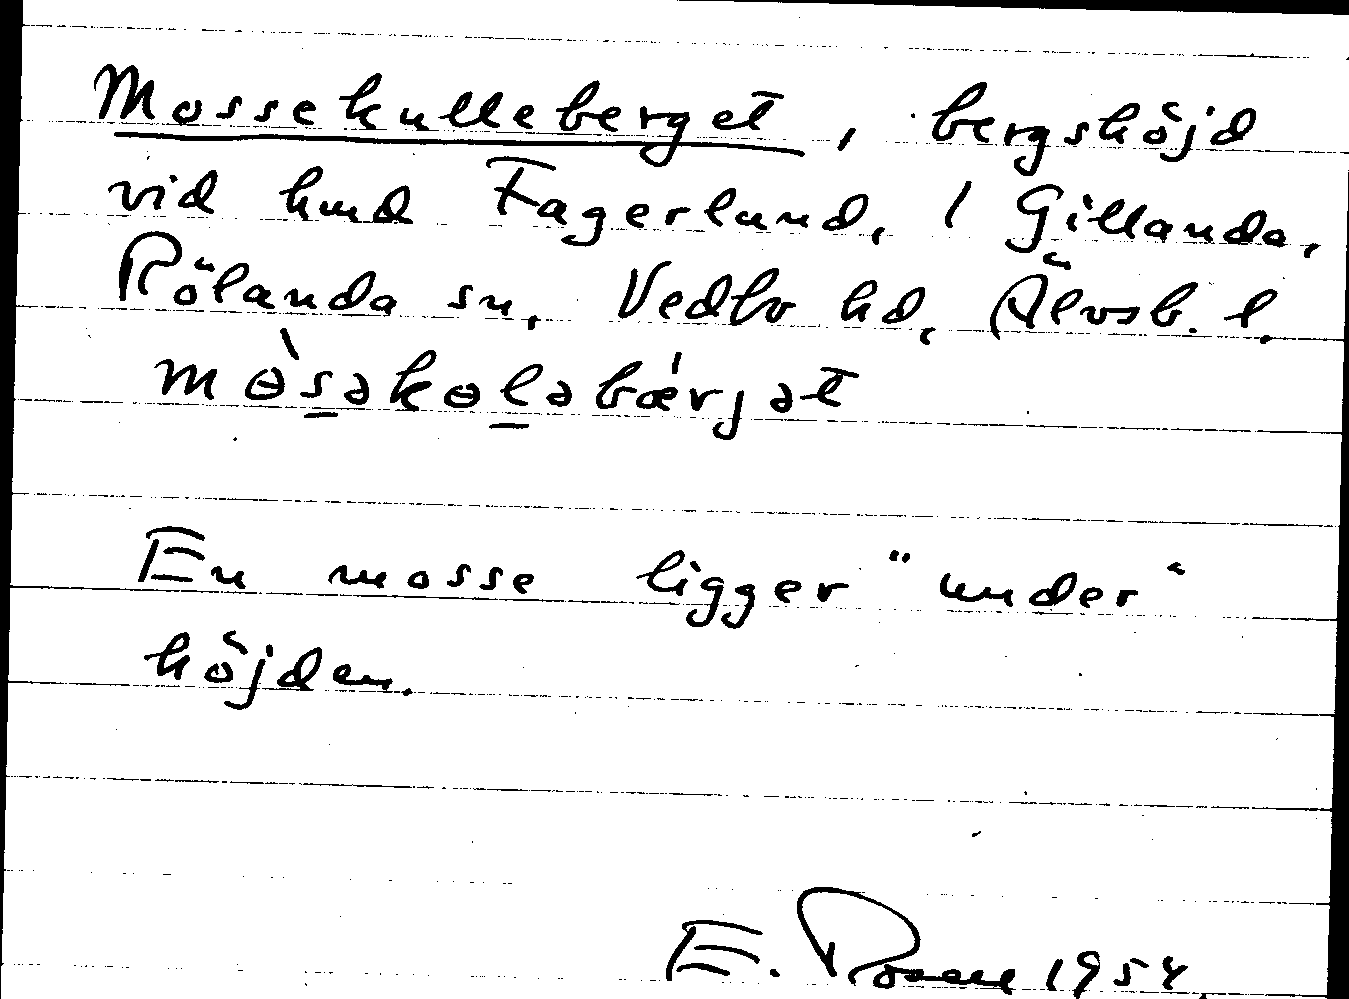 Mossekulleberget, bergshöjd
vid hmd Fagerlund, 1 Gillanda,
Rölanda sn, Vedbo hd, Älvsb. l.
mɵ̀s̲əkɵl̲əbǽrjət
En mosse ligger "under"
höjden.
E. 1954.